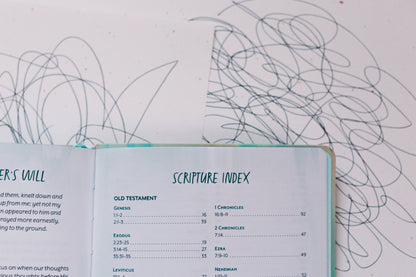 ER'S WILL
ed them, knelt down and
up from me; yet not my
en appeared to him and
prayed more earnestly,
ng to the ground.
cus on when our thoughts
SCRIPTURE INDEX
OLD TESTAMENT
GENESIS
1:1-2 16
2:1-3 39
EXODUS
2:23-25 19
3:14-15 27
33:31-33 33
LEVITICUS
1 CHRONICLES
16:8-11 92
2 CHRONICLES
7:14 47
EZRA
7:9-10 49
NEHEMIAH